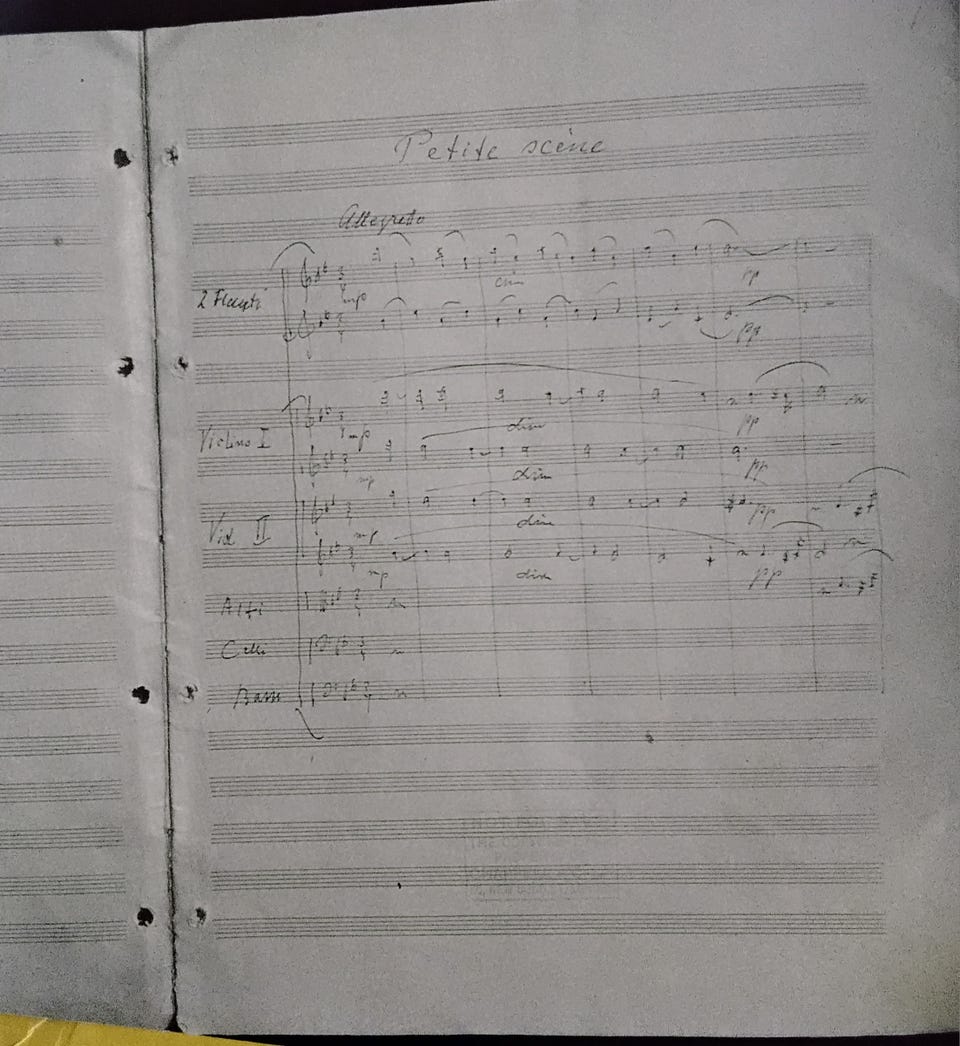 Petite scène
Allegretto
2 Flauti
mp
cresc
pp
pp
Violino I
mp
dim
pp
mp
dim
pp
Viol II
mp
dim
pp
mp
dim
pp
Alti
Celli
Bassi